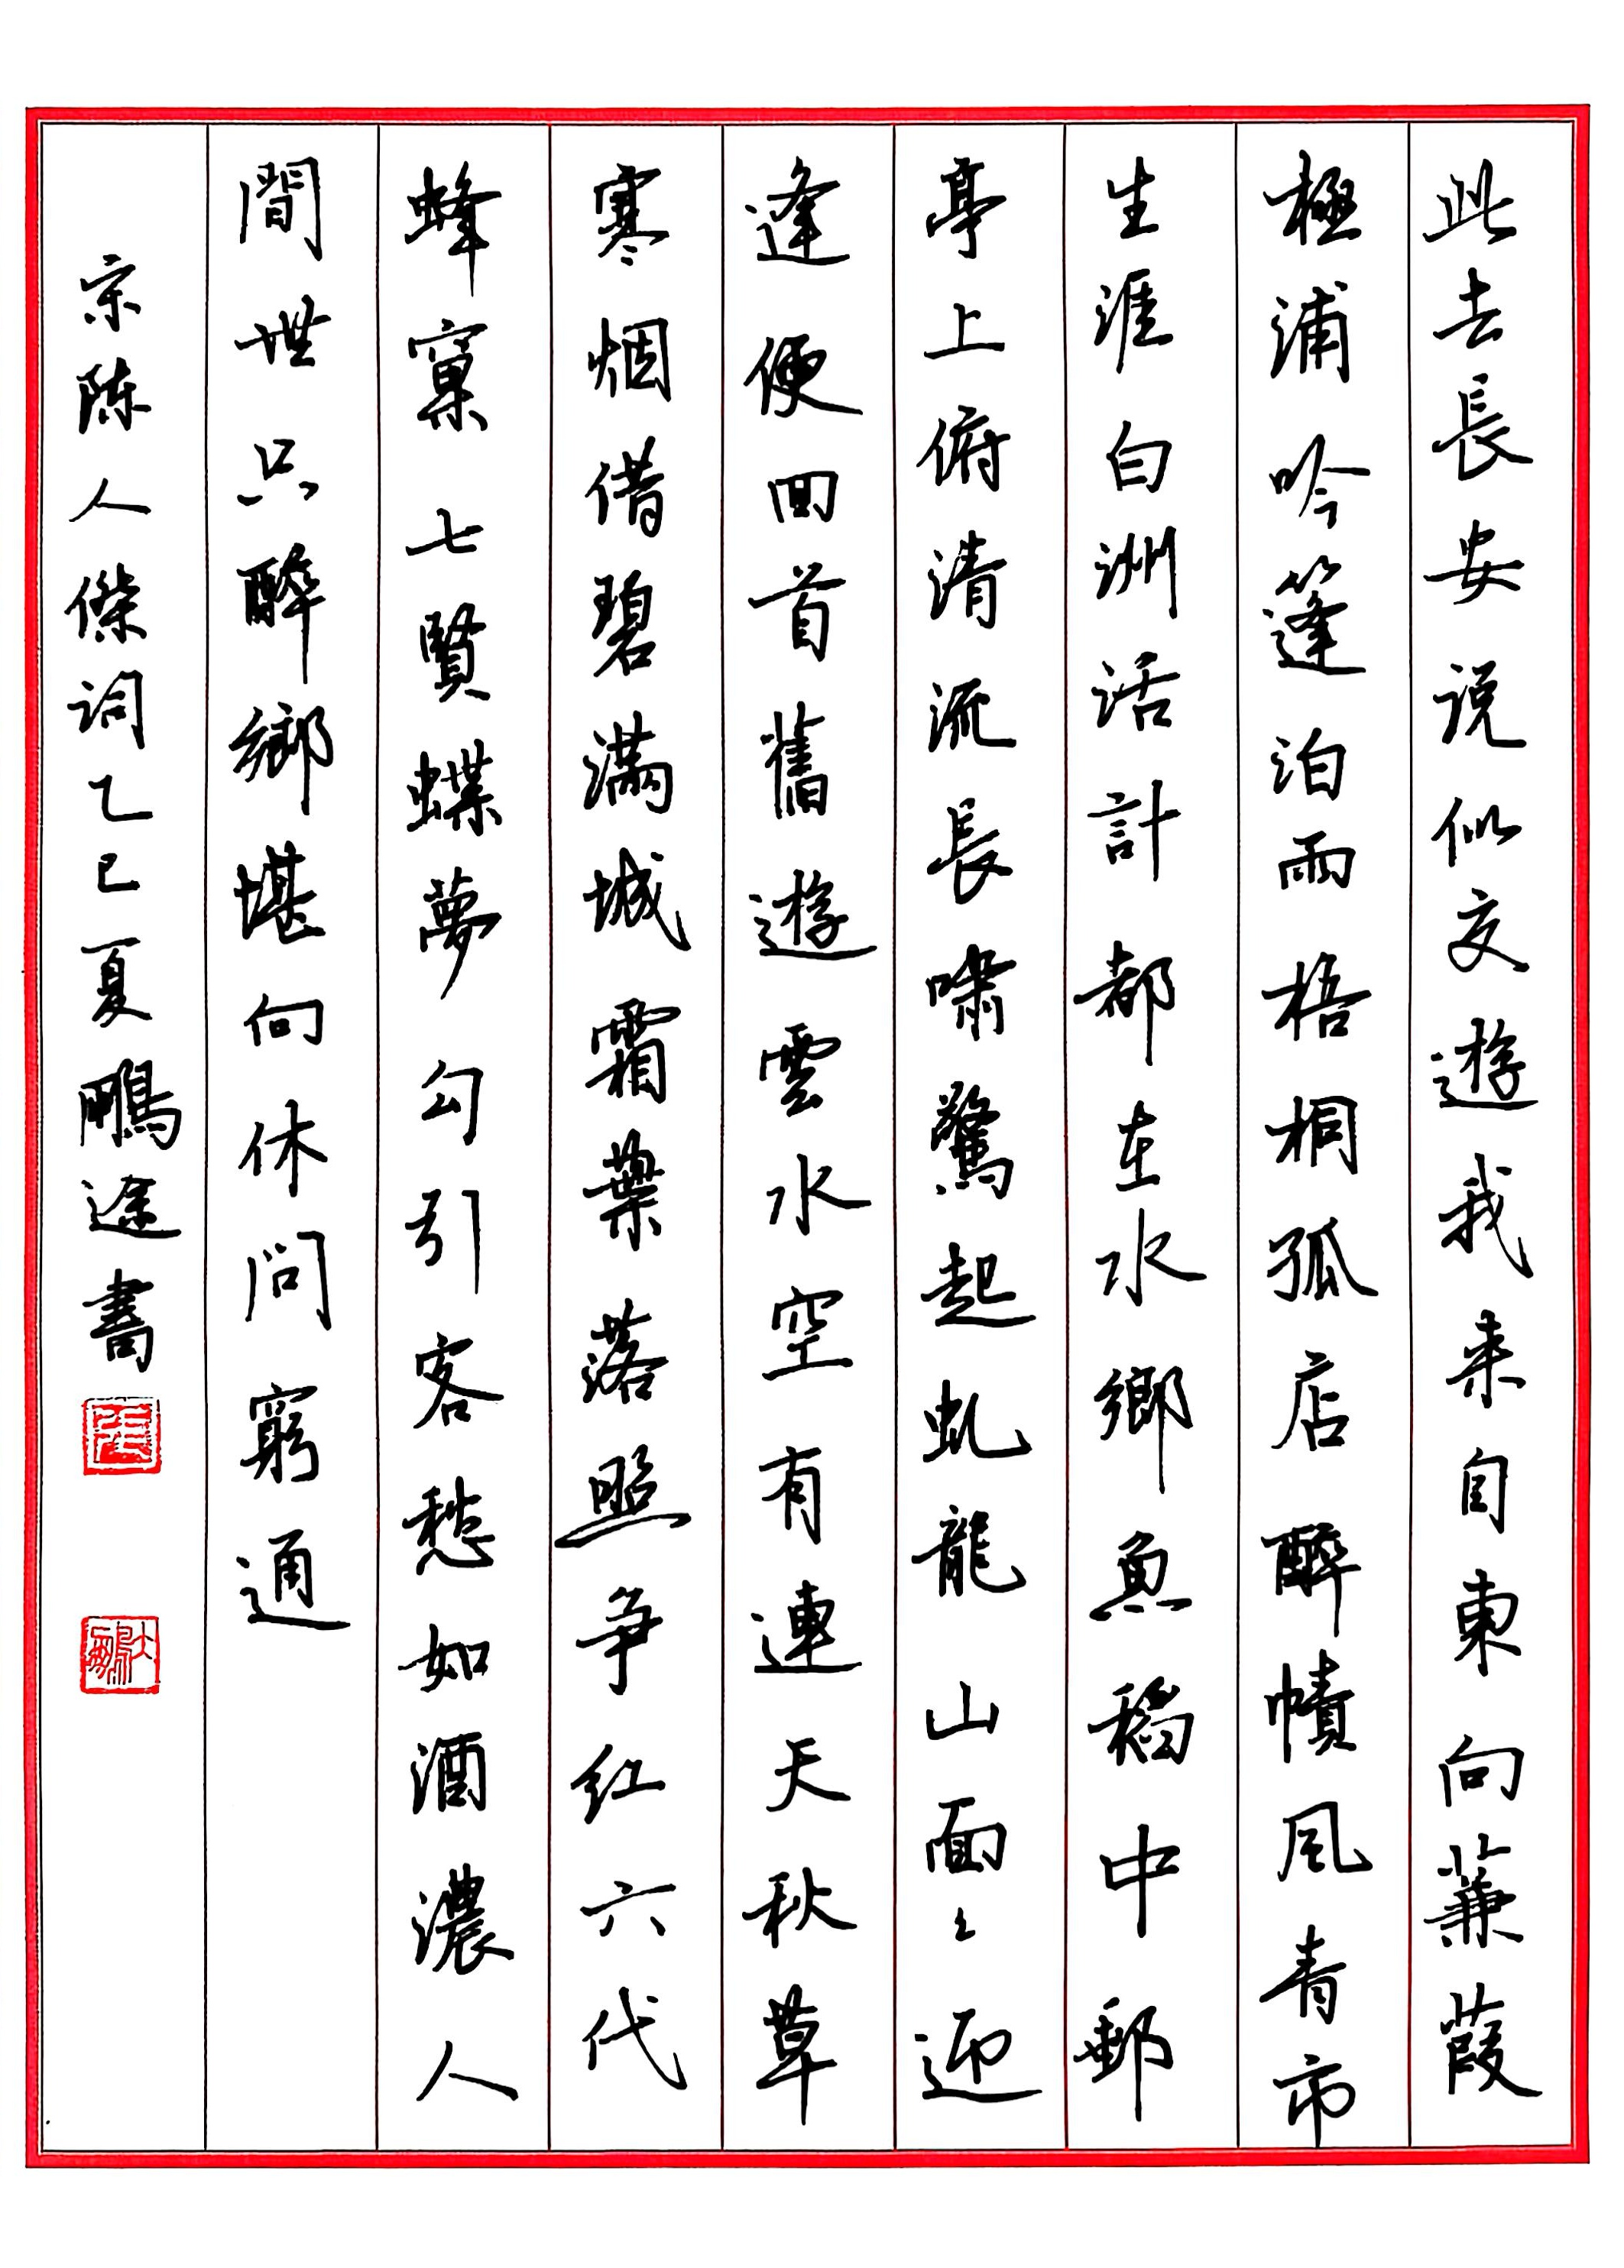 此去長安说似交遊我来自東向蒹葭
極浦吟篷泊雨梧桐孤店醉幘風青市
生涯白洲活計都在水鄉魚稻中郵
亭上俯清流長嘯驚起虬龍山面々迎
逢便回首舊遊雲水空有連天秋草
寒烟借碧滿城霜葉落照争红六代
蜂窠七賢蝶夢勾引客愁如酒濃人
間世只醉鄉堪向休問窮通
宋陈人傑词乙巳夏鵬途書